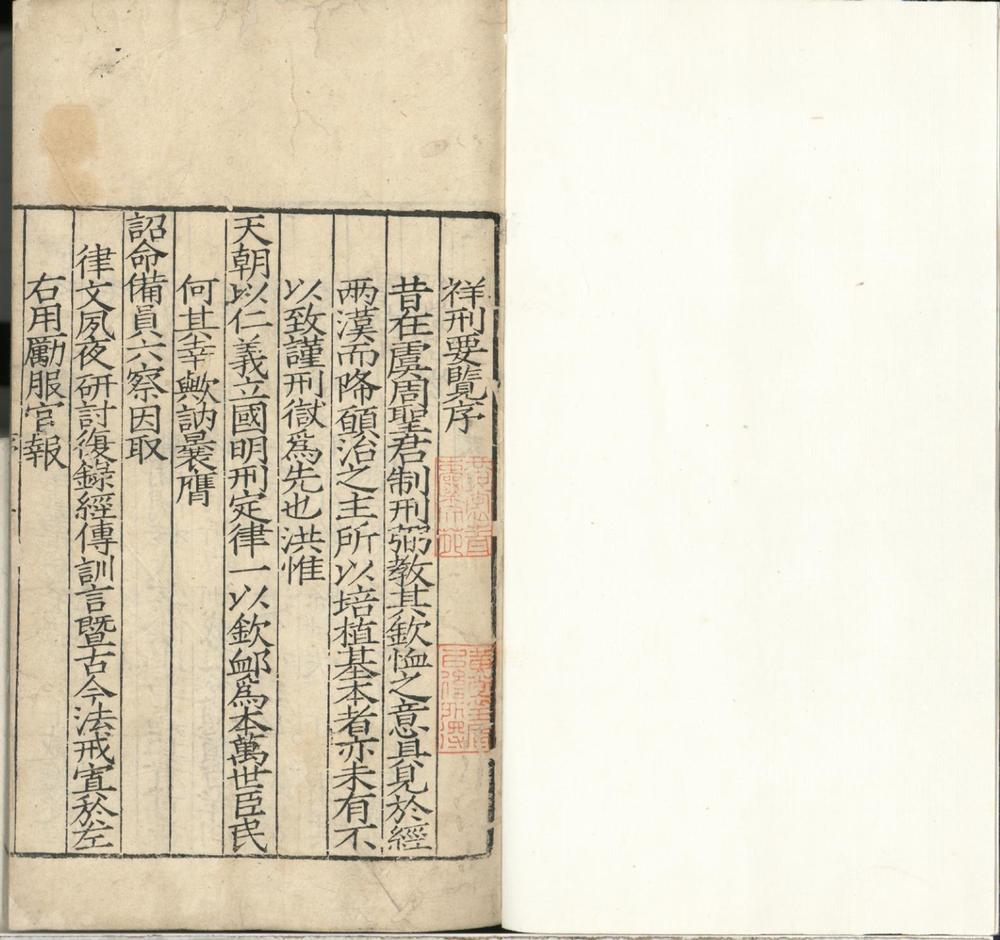 祥刑要覽序
昔在虞周聖君制刑弼教其欽恤之意具見於經
两漢而降願治之主所以培植基本者亦未有不
以致謹刑獄爲先也洪惟
天朝以仁義立國明刑定律一以欽卹爲本萬世臣民
何其幸歟訥曩膺
詔命備員六察因取
律文夙夜研討復錄經傳訓言暨古今法戒寘於左
右用勵服官報